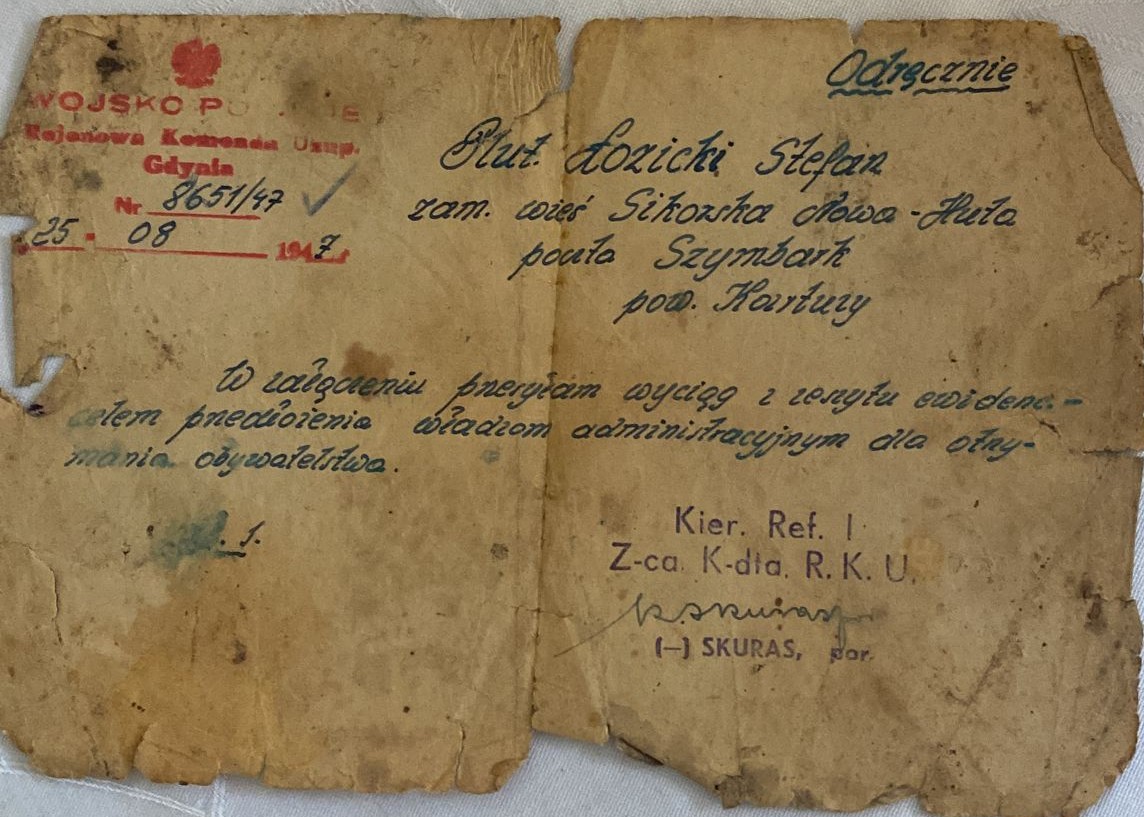 WOJSKO PO
Rejonowa Komenda Uzup.
Gdynia
Nr 8651/47
25 - 08 1947 r.
Odręcznie
Plut. Łozicki Stefan
zam. wieś Sikorska Nowa-Huta
pocz­ta Szymbark
pow. Kartuzy
W załączeniu przesyłam wyciąg z zeszytu ewidenc.-
celem przedłożenia władzom administracyjnym dla otrzy-
mania obywatelstwa.
1.
Kier. Ref. I
Z-ca. K-dta. R. K. U.
(—) SKURAS, por.